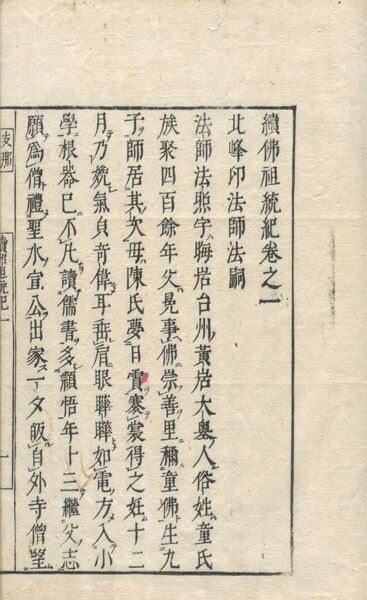 續佛祖統紀卷之一
北峰印法師法嗣
法師法照字晦岩台州黃岩大人俗姓童氏
族聚四百餘年父晃事佛崇善里稱童佛生九
子師居其次母陳氏夢日霣褰裳得之妊十二
月乃娩氣皃奇偉耳垂肩眼聯聯如電方入小
學根器已不凡讀儒書多穎悟年十三繼父志
願為僧禮聖水宜公出家一夕皈自外寺僧望
支那 續佛祖統紀一 一